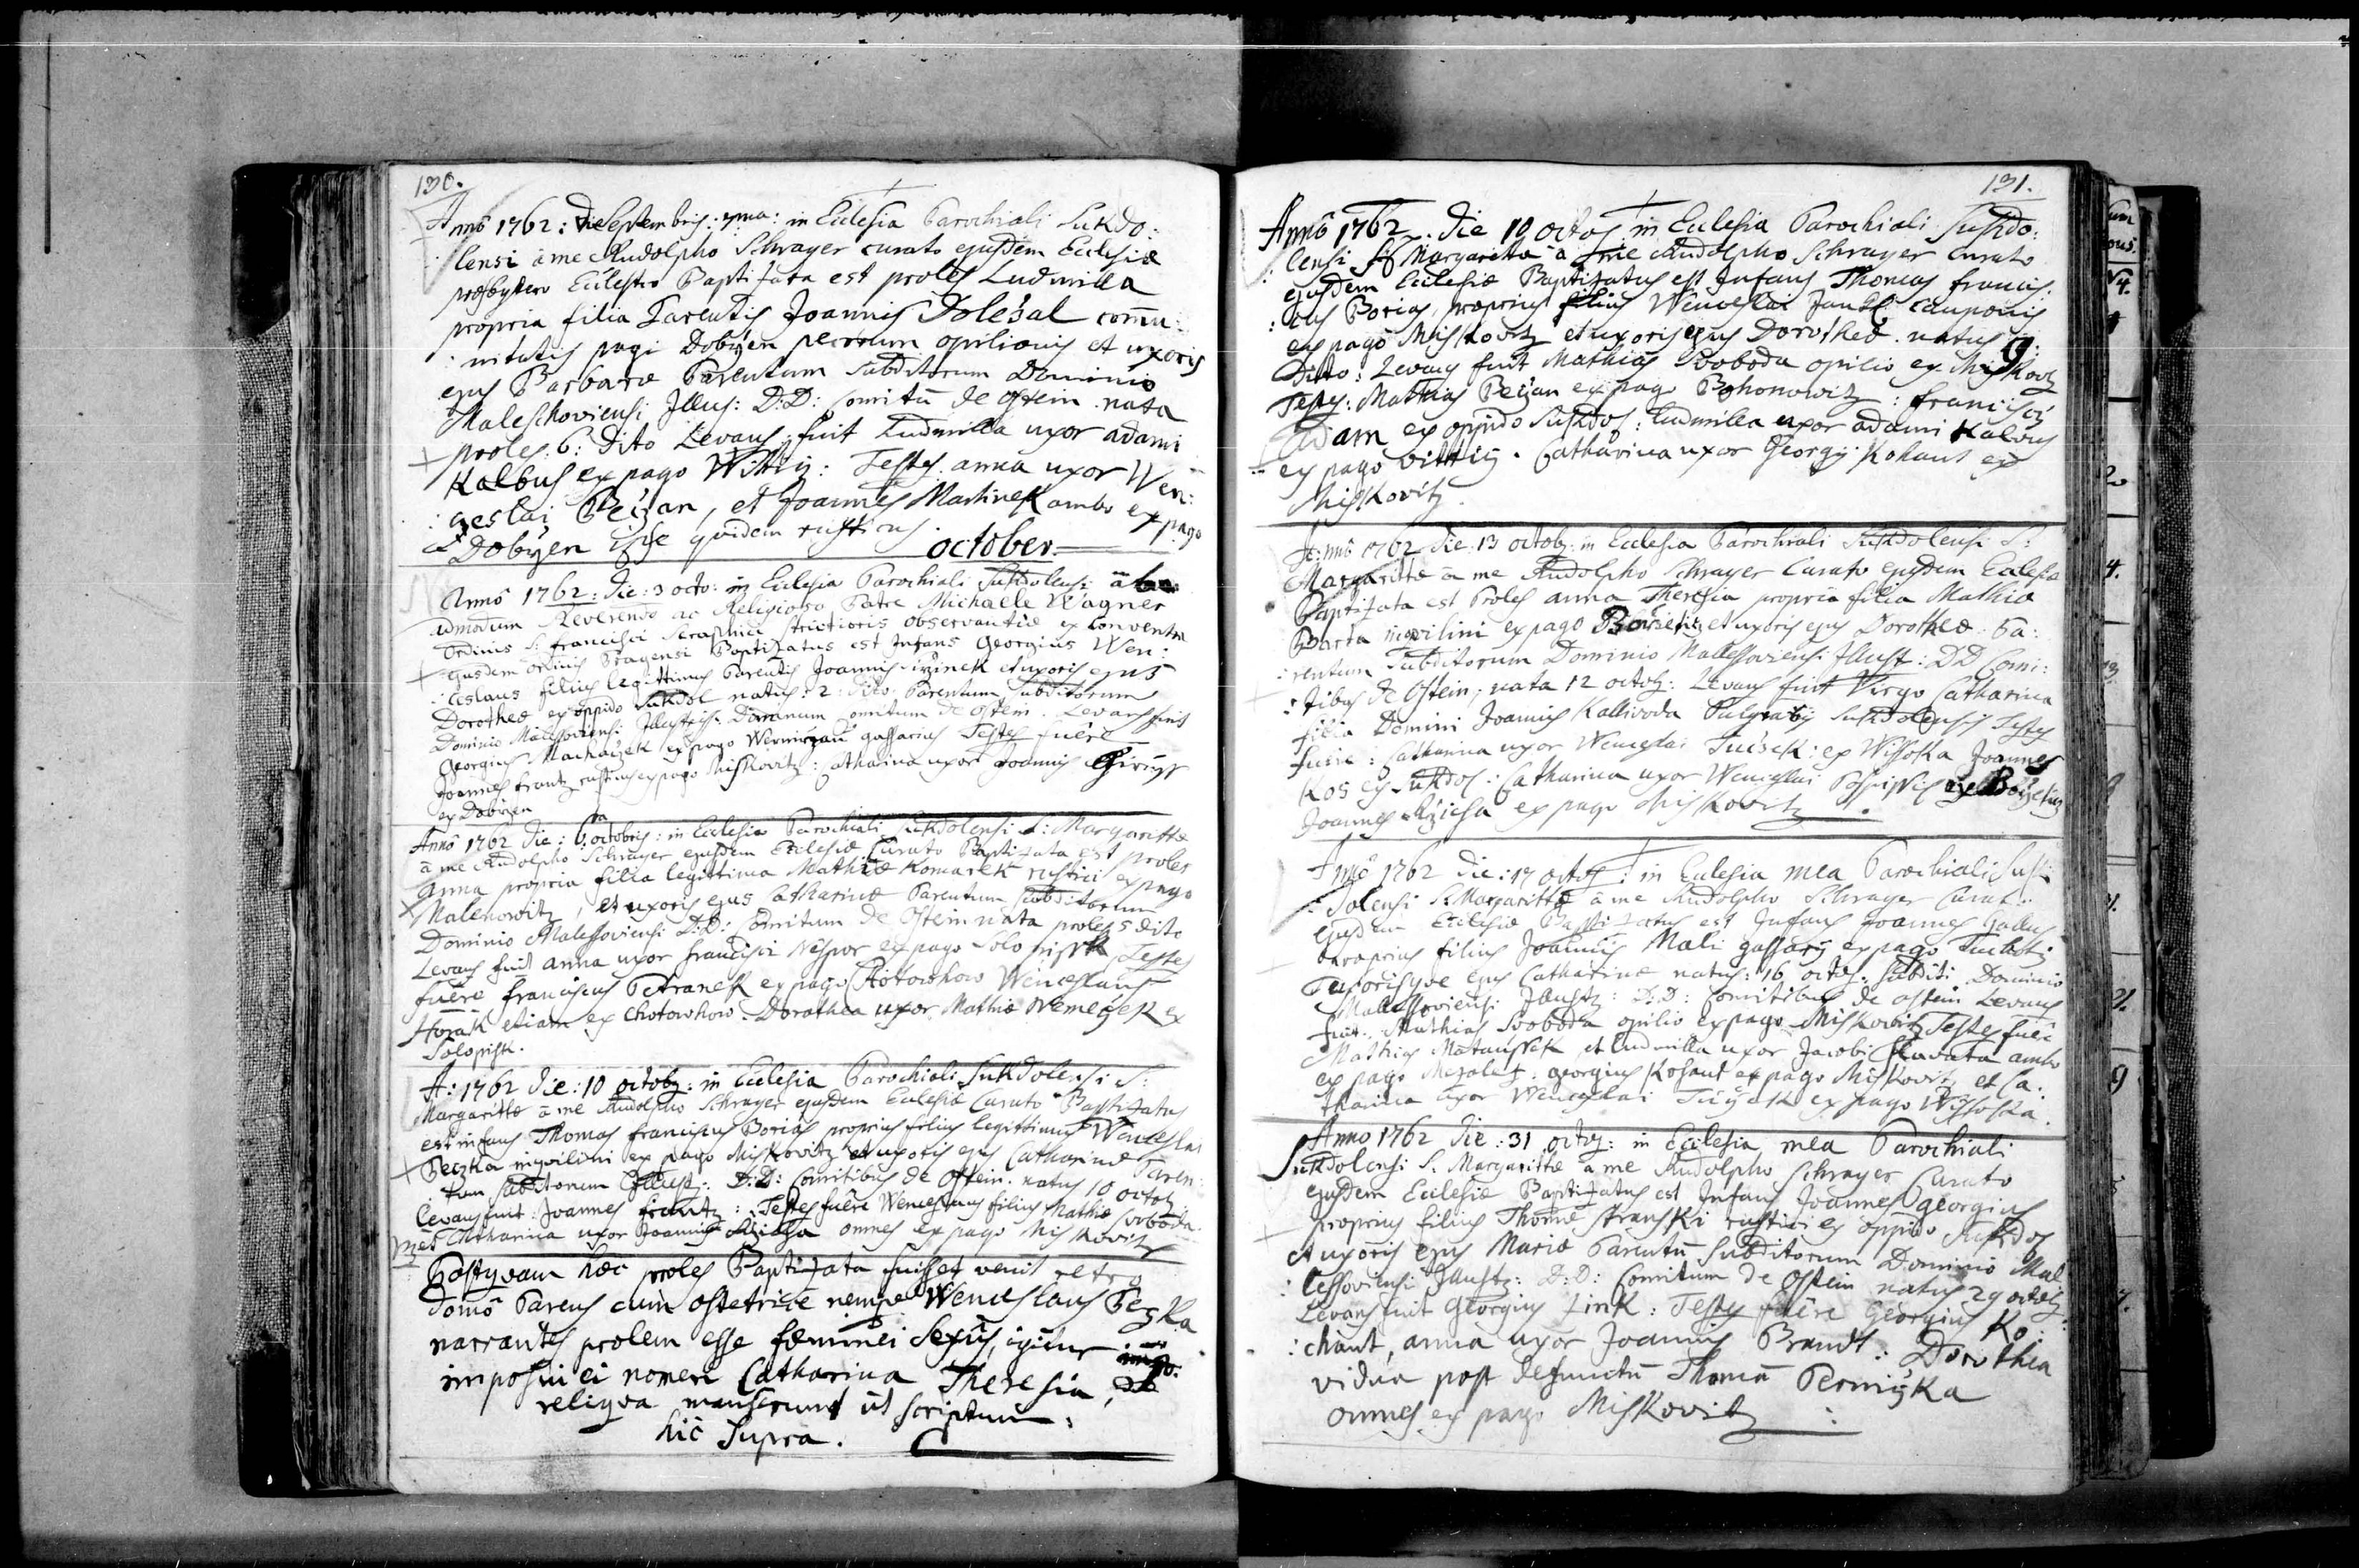 130.
Annô 1762: die Septembris: 7ma: in Ecclesia Parochiali Sukdo:
lensi â me Rudolpho Schrayer curato ejusdem Ecclesiæ
præsbytero Baptizata est proles Ludmilla
propria filia Parentis Joannis Doležal comu:
nitatis pagi Dobřen opilionis et uxoris
ejus Barbaræ Parentum Subditorum Dominio
Maleschoviensi Illus: D:D: Comitũ de Ostein nata
proles: 6: dito Levans fuit Ludmilla uxor adami
Kalbus ex pago Wittitz: Testes anna uxor Wen:
ceslai Beižan, et Joannes Martinek ambo ex pago
Dobřen ipse quidem rusticus.
October.
Annô 1762: die: 3 octo: in Eclesia Parochiali Sukdolensi â
admodum Reverendo ac Religioso Patre Michaele Wagner
Ordinis S: francisci Seraphici strictioris observantiæ ex Conventu
ejusdem ordinis Pragensi Baptizatus est Infans Georgius Wen:
ceslaus filius legittimus Parentis Joannis et uxoris ejus
Dorotheæ ex oppido Sukdol natus: 2: dito, Parentum subditorum
Dominio Malessoviensi Illustris: Dominorum Comitum de Ostein. Levans fuit
Georgius Machaczek ex pago gassarius Testes fuêre
Joannes frantz rusticus ex pago Miskovitz: Catharina uxor Joannis
ex Dobřen
Annô 1762 die: 6ta octobris: in Ecclesia Parochiali Sukdolensi S: Margarittæ
â me Rudolpho Schrayer ejusdem Ecclesiæ Curato Baptizata est proles
Anna propria filia legittima Mathiæ Komarek rustici ex pago
Malenowitz, et uxoris ejus Catharinæ Parentum Subditorum
Dominio Malessoviensi D:D: Comitum de Ostein nata proles 5 dito
Levans fuit anna uxor francisci Nespor ex pago Solopisk Testes
fuêre franciscus Petranek ex pago Chotowhow Wenceslaus
Horak etiam ex Chotowhow. Dorothea uxor Mathiæ Nemeczek ex
Solopisk.
A: 1762 die: 10 octobr: in Ecclesia Parochiali Sukdolensi S:
Margarittæ â me Rudolpho Schrayer ejusdem Eclesiæ Curato Baptizatus
est infans Thomas franciscus Borias proprius filius legittimus Wenceslai
Peczka inqvilini ex pago Miskovitz et uxoris ejus Catharinæ Paren:
tum Subditorum Illust: D:D: Comitibus de Ostein. natus 10 octob
Levans fuit: Joannes frantz: Testes fuêre Wenceslaus filius Mathiæ Svoboda
et Catharina uxor Joannis Rzicha omnes ex pago Miskovitz
Postqvam hæc proles Baptizata fuisset venit retro
domô Parens cum obstetrice nempe Wenceslaus Peczka
narrantes prolem esse fæminei Sexûs, igitur
imposui ei nomen Catharina Theresia,
reliqva manserunt ut scriptum:
hic Supra.
131.
Annô 1762. die 10 octob in Eclesia Parochiali Sukdo:
lensi S Margarittæ â me Rudolpho Schrayer Curato
ejusdem Eclesiæ Baptizatus est Infans Thomas francis:
cus Borias, proprius filius Wenceslai cauponis
ex pago Miskovitz et uxoris ejus Dorotheæ. natus 9:
Dito: Levans fuit Mathias Svoboda opilio ex Miskovtz
Testes: Mathias Beižan ex pago Bohonowitz: franciscus
Adam ex oppido Sukdol: Ludmilla uxor adami Kalbus
ex pago Vittitz. Catharina uxor Georgij Kohaut ex
Miskovitz.
A:nnô 1762 die 13 octob: in Eclesia Parochiali Sukdolensi S:
Margarittæ â me Rudolpho Schrayer Curato ejusdem Eclesiæ
Baptizata est Proles Anna Theresia propria filia Mathiæ
Barta inqvilini ex pago et uxoris ejus Dorotheæ. Pa:
rentum Subditorum Dominio Mallessoviensi Illust: DD Comi:
tibus de Ostein, nata 12 octob: Levans fuit Virgo Catharina
filia Domini Joannis Kallivoda Sukdolensis Testes
fuêre: Catharina uxor Wenceslai Tuczek: ex Wissoka Joannes
Kos ex Sukdol: Catharina uxor Wenceslai Pospissil ex
Joannes Rzicha ex pago Miskovitz.
Annô 1762 die: 17 octob: in Eclesia mea Parochiali Suk:
dolensi S. Margarittæ â me Rudolpho Schrayer Curat:
ejusdem Ecclesiæ Baptizatus est Infans Joannes Gallus
proprius filius Joannis Mali gassarij ex pago
uxorisqve ejus Catharinæ natus: 16 octob: subditi Dominio
Malessoviensi Illustr: D:D: Comitibus de ostein Levans
fuit. Mathias Svoboda opilio ex pago Miskovitz Testes fuêr
Mathias Matausek et Ludmilla uxor Jacobi Hlavata ambo
ex pago Mezoles: georgius Kohaut ex pago Miskovitz et Ca:
tharina uxor Wenceslai Tuczek ex pago Wissoka.
Anno 1762 die: 31 octob: in Ecclesia mea Parochiali
Sukdolensi S. Margarittæ â me Rudolpho Schrayer Curato
ejusdem Ecclesiæ Baptizatus est Infans Joannes georgius
proprius filius Thomæ Stranski rustici ex oppido Sukdol
et uxoris ejus Mariæ Parentũ Subditorum Dominio Mal
lessoviensi Illustr: D:D: Comitum de Ostein natus 29 octob:
Levans fuit Georgius Link: Testes fuêre Georgius Ko:
chaut, anna uxor Joannis Brandt: Dorothea
vidua post defunctũ Thomã Perniczka
omnes ex pago Miskovitz: